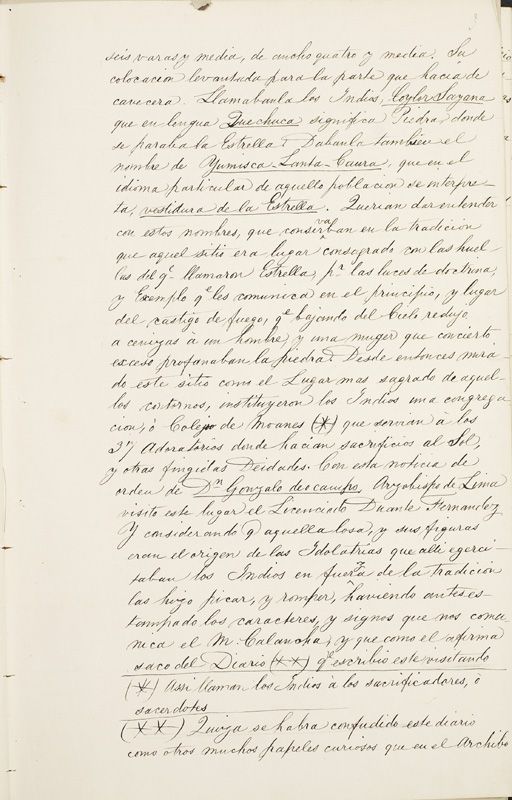 seis varas y media, de ancho quatro y media. Su
colocacion levantada para la parte que hacia de
cavecera. Llamabanla los Indios, Coyllor Sayana
que en lengua Quechuca significa Piedra, donde
se paraba la Estrella. Dabanla tambien el
nombre de Yumisca Lanta-Caura, que en el
idioma particular de aquella poblacion se interpre-
ta, vestidura de la Estrella. Querian dar entender
con estos nombres, que conservaban en la tradicion
que aquel sitio era lugar consagrado con las huel-
las del qe. llamaron Estrella, pr. las luces de doctrina,
y Exemplo qe. les comunica en el principio, y lugar
del castigo de fuego, qe bajando del Cielo redujo
a cenizas a un hombre, y una muger que concierto
exceso profanaban la piedra. Desde entonces mira-
do este sitio como el Lugar mas sagrado de aquel-
los contornos, instituyeron los Indios una congrega
cion, ò Colejio de Moanes (*) que servian à los
3") Adoratorios donde hacian sacrificios al Sol,
y otras fingidas Deidades. Con esta noticia de
orden de Dn Gonzalo de ocampo, Arzobispo de Lima
visito este lugar el Licenciado Duante Fernandez
Y considerando q aquella losa, y sus figuras
eran el origen de las Idolatrias que alli egerci-
taban los Indios en fuerza de la tradicion
las hizo picar, y romper, haviendo antes es-
tampado los caracteres, y signos que nos comu-
nica el M. Calancha, y que como el afirma
saco del Diario (* *) qe escribio este visitando
(*) Assi llaman los Indios à los sacrificadores, ò
sacerdotes
(* *) Quiza se habra confudido este diario
como otros muchos papeles curiosos que en el Archibo